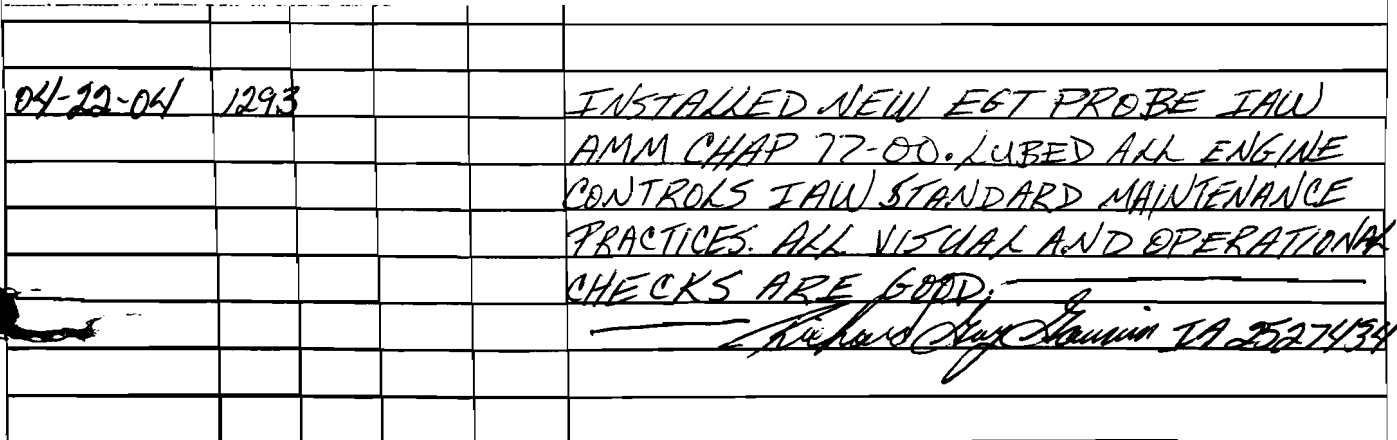 04-22-04 1293 INSTALLED NEW EGT PROBE IAW
AMM CHAP 77-00. LUBED ALL ENGINE
CONTROLS IAW STANDARD MAINTENANCE
PRACTICES. ALL VISUAL AND OPERATIONAL
CHECKS ARE GOOD.
Richard Guy IA 2527434